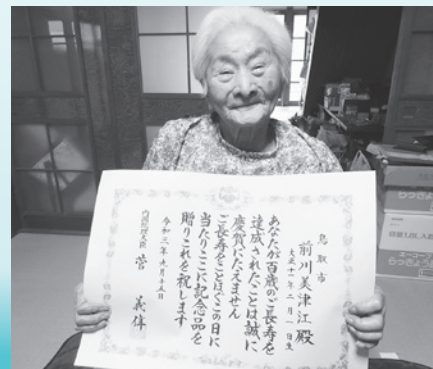 鳥取市
前川美津江殿
大正十一年二月一日生
あなたが百歳のご長寿を
達成されたことは誠に
慶賀にたえません
ご長寿をことほぐこの日に
当たりここに記念品を
贈りこれを祝します
令和三年九月十五日
内閣総理大臣 菅 義偉